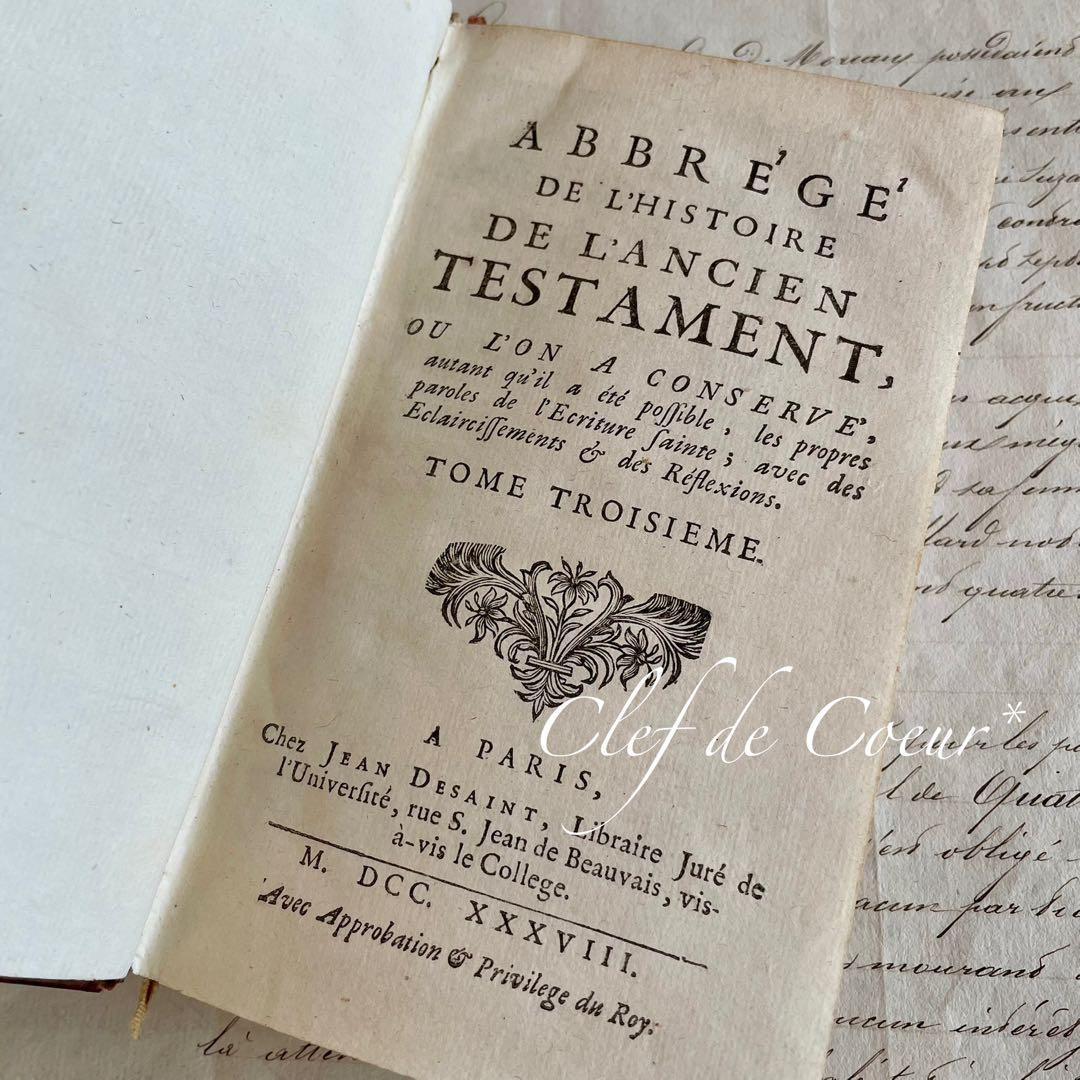 ABBRE'GE'
DE L'HISTOIRE
DE L'ANCIEN
TESTAMENT,
OU L'ON A CONSERVE',
autant qu'il a été poſſible, les propres
paroles de l'Ecriture ſainte; avec des
Eclairciſſements & des Réflexions.
TOME TROISIEME.
A PARIS,
Chez JEAN DESAINT, Libraire Juré de
l'Univerſité, rue S. Jean de Beauvais, vis-
à-vis le College.
M. DCC. XXXVIII.
Avec Approbation & Privilege du Roy.
Clef de Coeur*
Moreau possédaient
acqui
nob
quatre
les
l de Quat
obligé
acun par
mourand
aucun intérêt
là